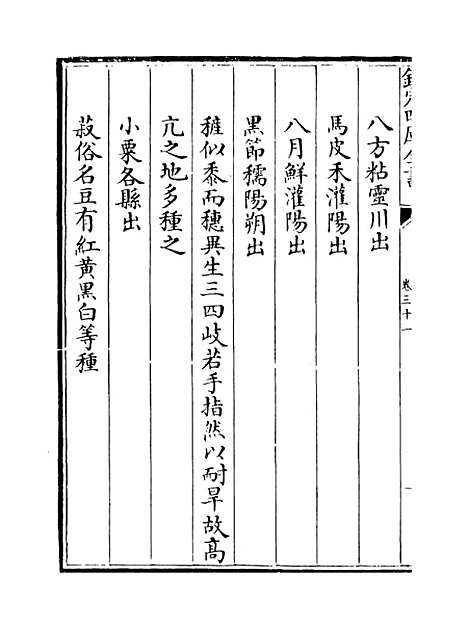 欽定四庫全書
卷三十一
八方粘靈川出
馬皮禾灌陽出
八月鮮灌陽出
黑節穤陽朔出
稚似黍而穗異生三四歧若手指然以耐旱故高
亢之地多種之
小粟各縣出
菽俗名豆有紅黄黑白等種